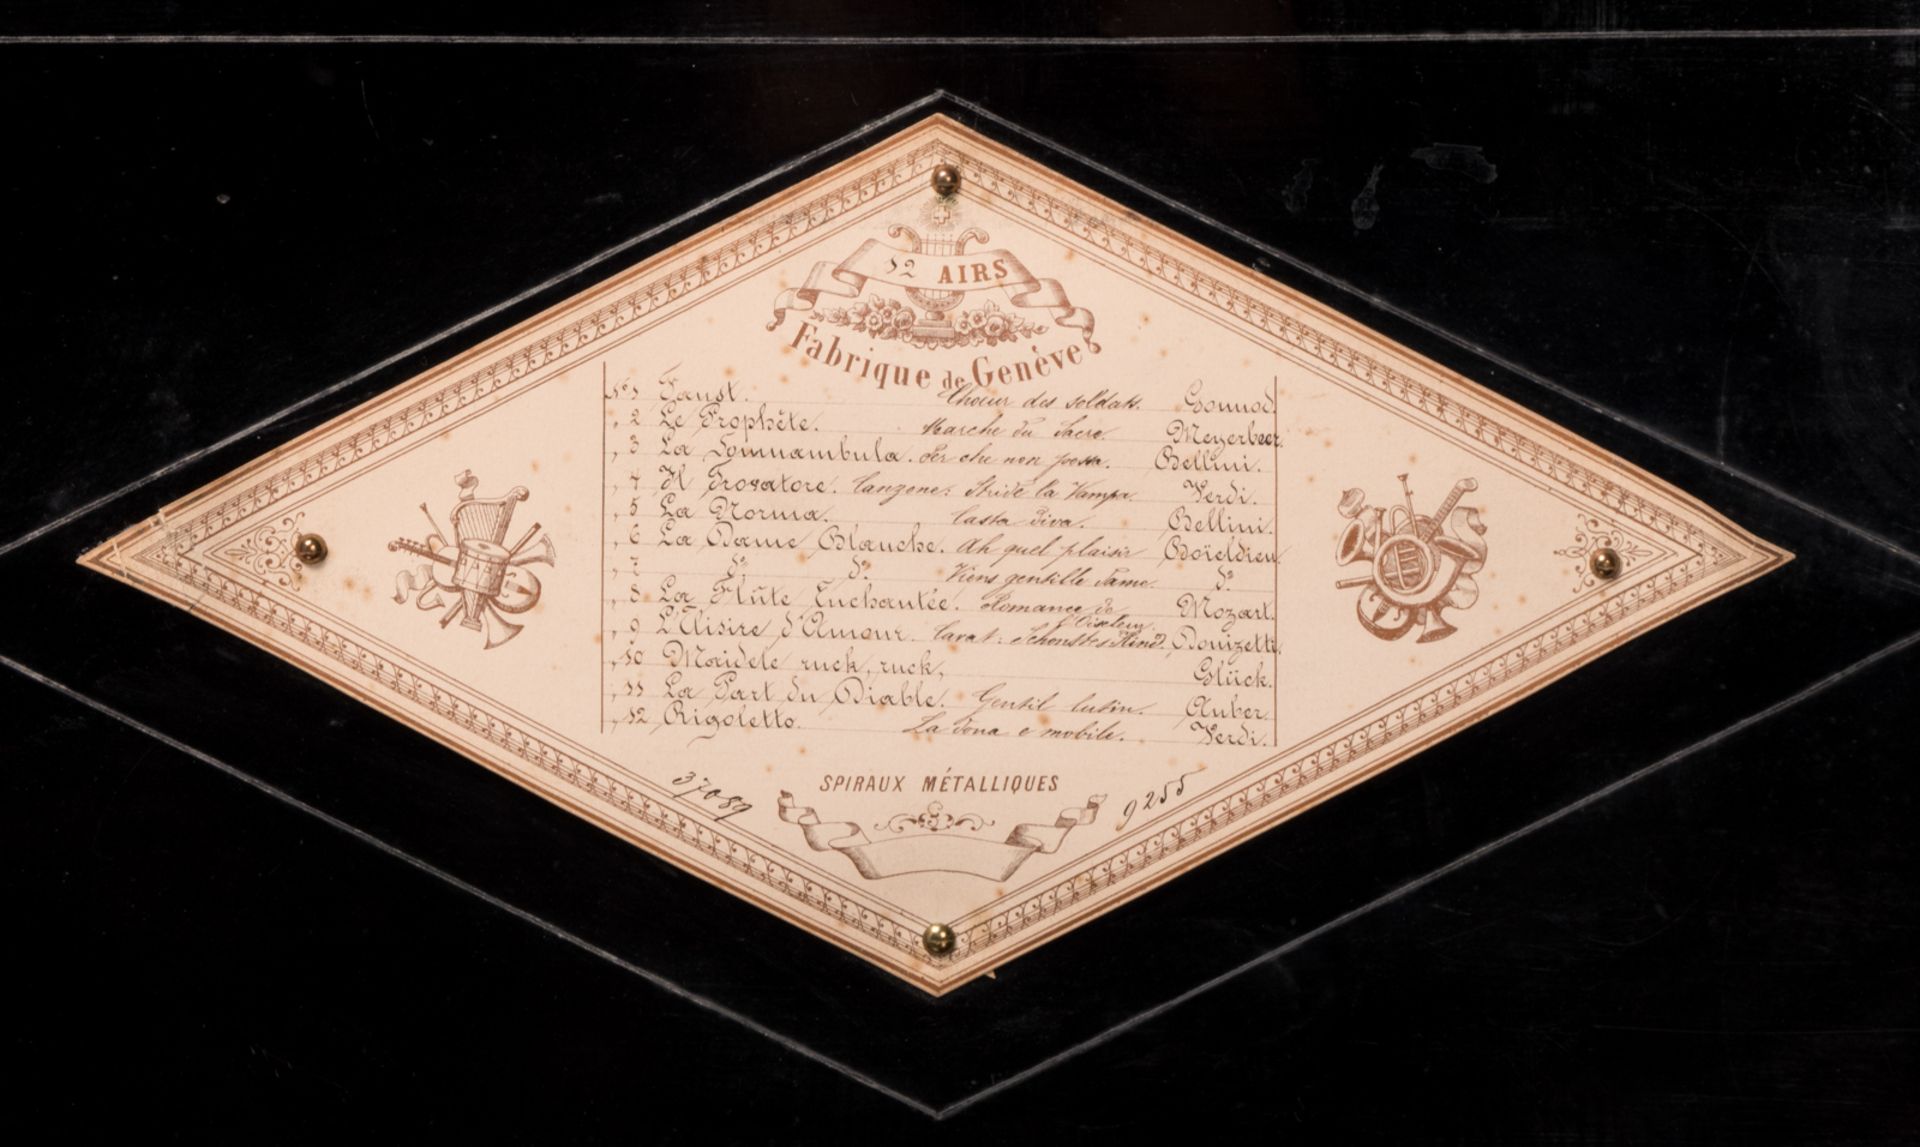 12 AIRS
Fabrique de Genève
No 1 Faust. Choeur des soldats. Gounod.
" 2 Le Prophête. Marche du Sacre. Meyerbeer.
" 3 La Somnambula. Per che non posso. Bellini.
" 4 Il Trovatore. Canzone: Stride la Vampa. Verdi.
" 5 La Norma. Casta diva. Bellini.
" 6 La Dame Blanche. Ah quel plaisir Boïeldieu
" 7 do do Viens gentille dame. do
" 8 La Flûte Enchantée. Romance de Mozart.
l'Oiseleur.
" 9 L'Elisire d'Amour. Cavat: Schonstes Kind. Donizetti.
" 10 Maidele ruck, ruck, Glück.
" 11 La Part du Diable. Gentil lutin. Auber.
" 12 Rigoletto. La dona e mobile. Verdi.
SPIRAUX MÉTALLIQUES
37089
9255